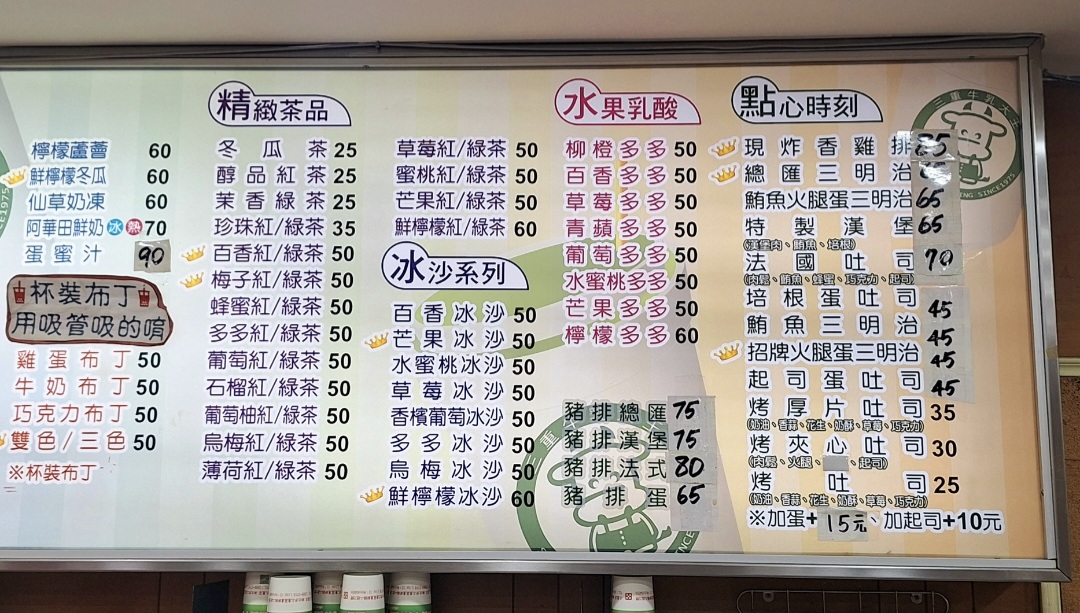 檸檬蘆薈 60
鮮檸檬冬瓜 60
仙草奶凍 60
阿華田鮮奶 冰 熱 70
蛋蜜汁 90
杯裝布丁
用吸管吸的唷
雞蛋布丁 50
牛奶布丁 50
巧克力布丁 50
雙色/三色 50
※杯裝布丁
精緻茶品
冬瓜茶 25
醇品紅茶 25
茉香綠茶 25
珍珠紅/綠茶 35
百香紅/綠茶 50
梅子紅/綠茶 50
蜂蜜紅/綠茶 50
多多紅/綠茶 50
葡萄紅/綠茶 50
石榴紅/綠茶 50
葡萄柚紅/綠茶 50
烏梅紅/綠茶 50
薄荷紅/綠茶 50
草莓紅/綠茶 50
蜜桃紅/綠茶 50
芒果紅/綠茶 50
鮮檸檬紅/綠茶 60
冰沙系列
百香冰沙 50
芒果冰沙 50
水蜜桃冰沙 50
草莓冰沙 50
香檳葡萄冰沙 50
多多冰沙 50
烏梅冰沙 50
鮮檸檬冰沙 60
水果乳酸
柳橙多多 50
百香多多 50
草莓多多 50
青蘋多多 50
葡萄多多 50
水蜜桃多多 50
芒果多多 50
檸檬多多 60
豬排總匯 75
豬排漢堡 75
豬排法式 80
豬排蛋 65
點心時刻
現炸香雞排
總匯三明治
鮪魚火腿蛋三明治 65
特製漢堡 65
(漢堡肉、鮪魚、培根)
法國吐司 70
(肉鬆、鮪魚、蜂蜜、巧克力、起司)
培根蛋吐司 45
鮪魚三明治 45
招牌火腿蛋三明治 45
起司蛋吐司 45
烤厚片吐司 35
(奶油、香蒜、花生、奶酥、草莓、巧克力)
烤夾心吐司 30
(肉鬆、火腿、 、起司)
烤吐司 25
(奶油、香蒜、花生、奶酥、草莓、巧克力)
※加蛋+15元、加起司+10元
三重牛乳大
SINCE1975